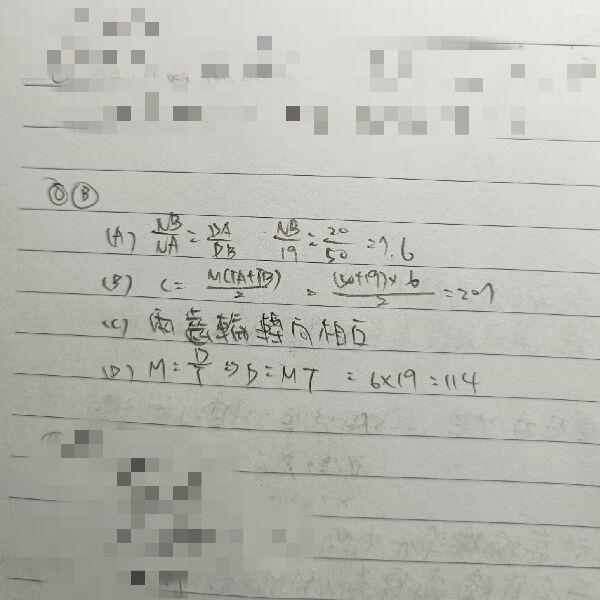 ⓪ Ⓑ
(A) NB/NA = DA/DB NB/19 = 20/50 = 7.6
(B) C = M(TA+TB)/2 = (50+19)×6/2 = 207
(C) 兩齒輪轉向相反
(D) M = D/T ⇒ D = MT = 6×19 = 114